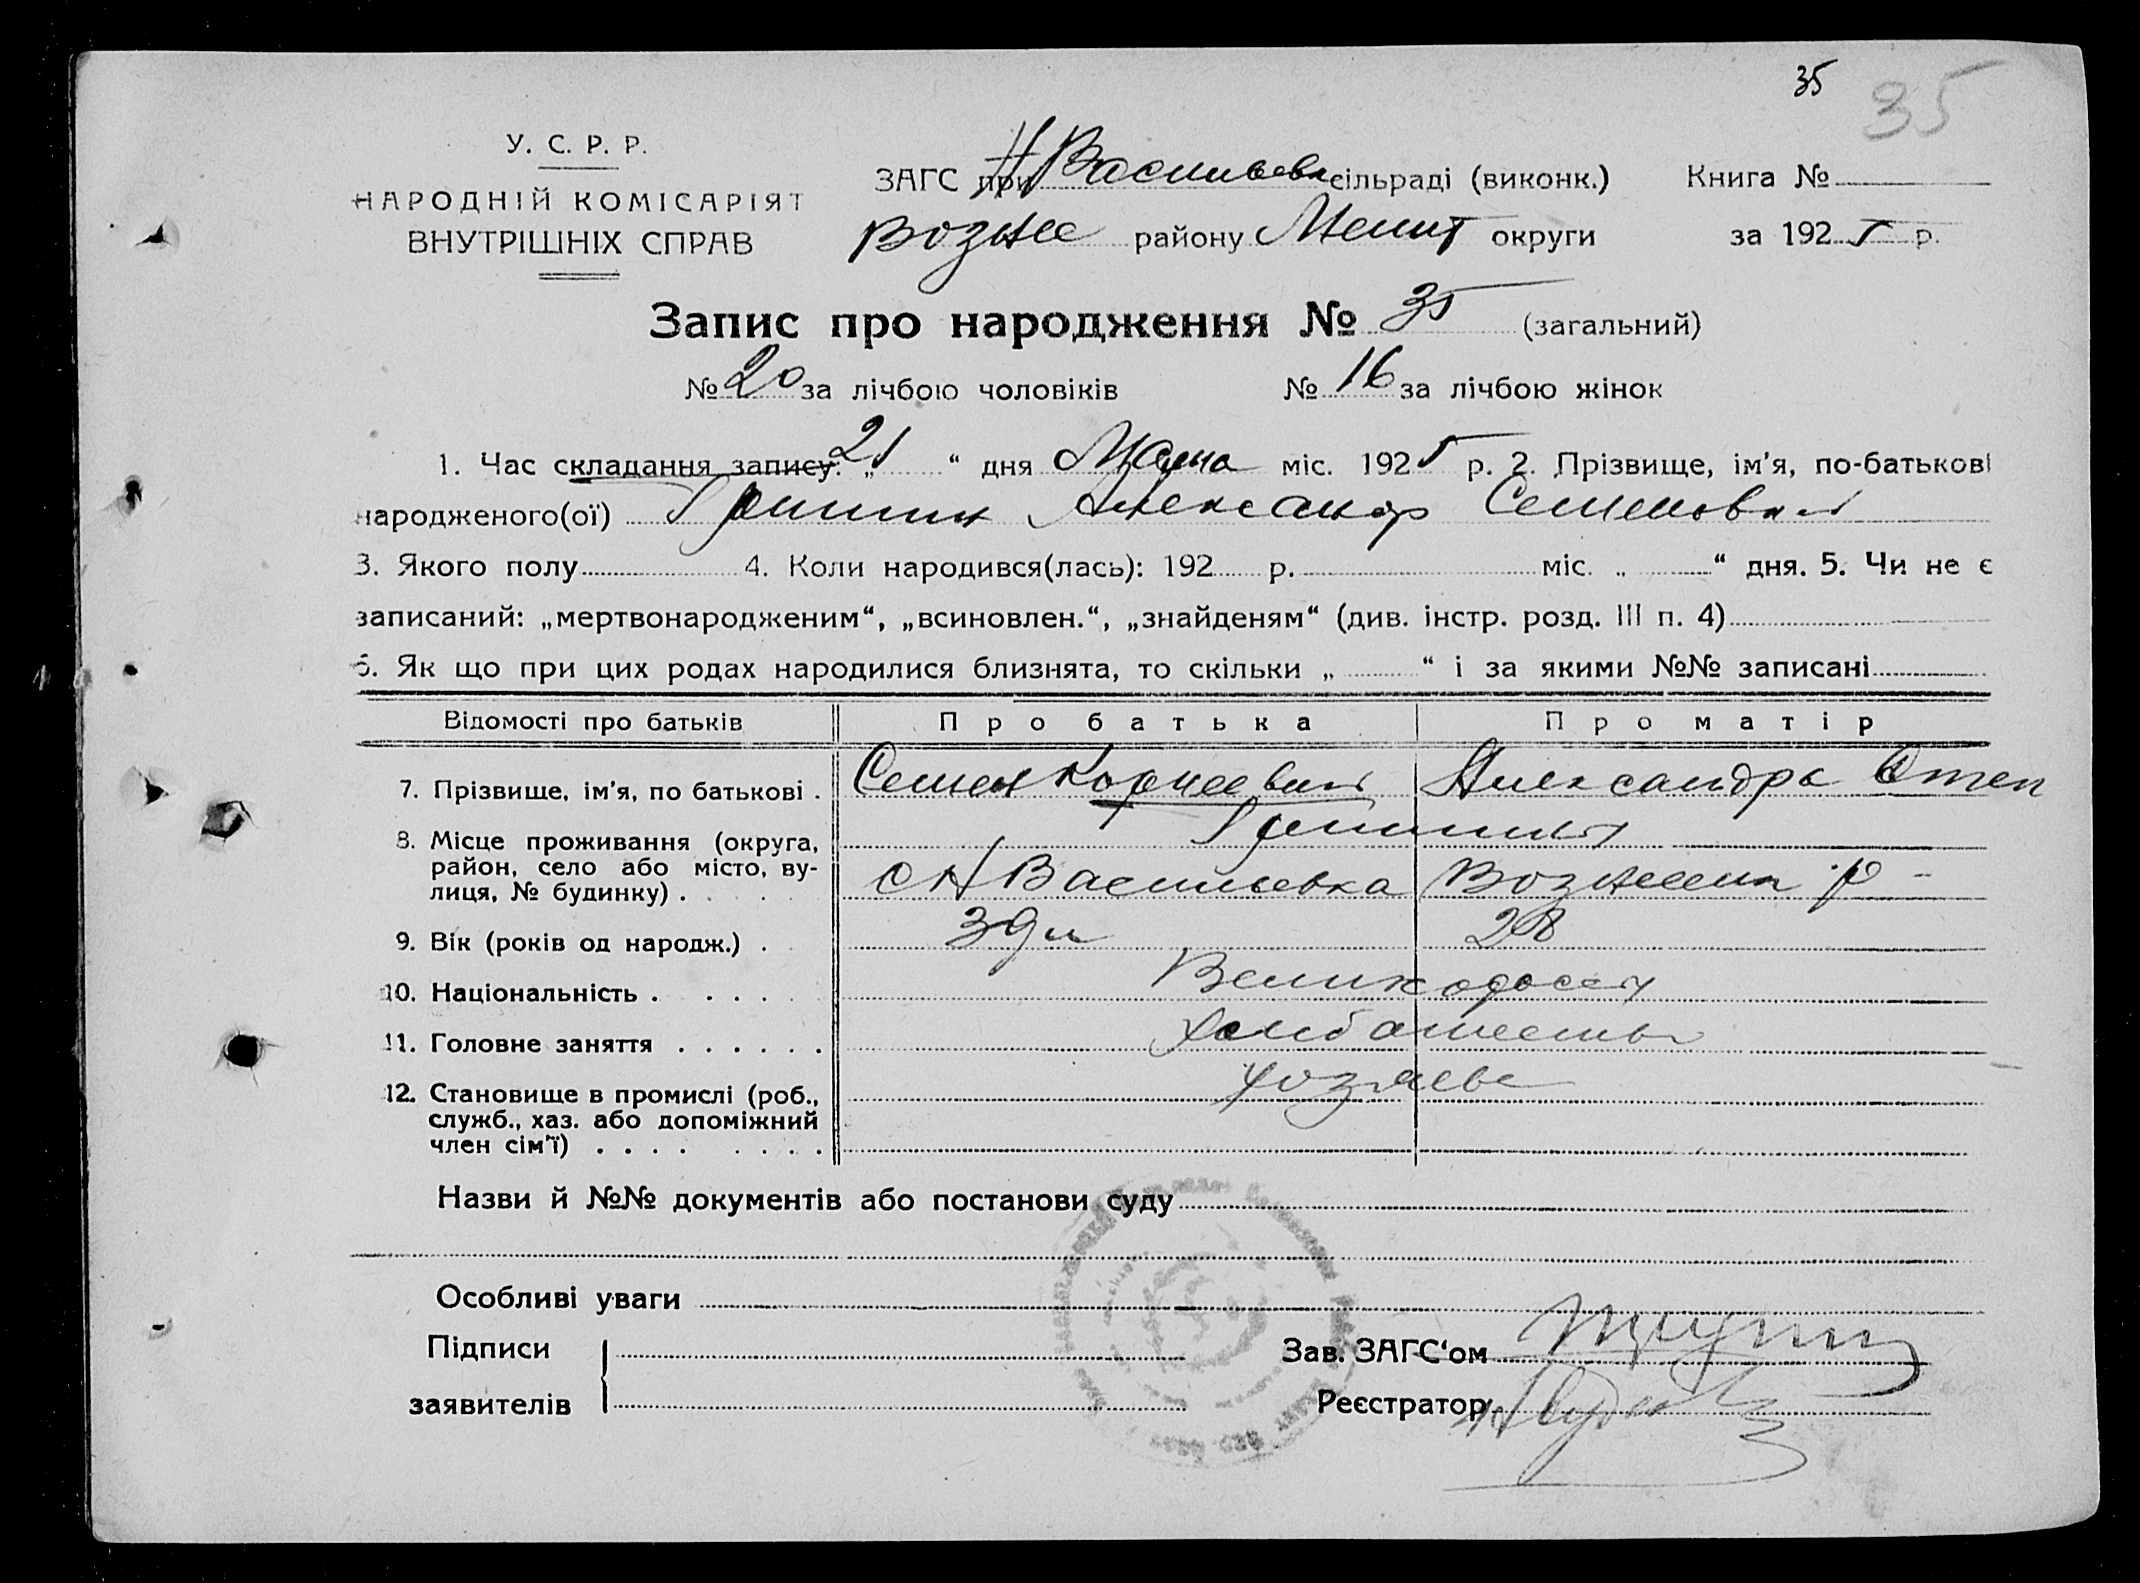 35 35
У. С. Р. Р.
НАРОДНІЙ КОМІСАРІЯТ
ВНУТРІШНІХ СПРАВ
ЗАГС при Н Васильевк сільраді (виконк.) Книга №
Возне району Мелит округи за 1925 р.
Запис про народження № 35 (загальний)
№ 20 за лічбою чоловіків № 16 за лічбою жінок
1. Час складання запису: „21“ дня Марта міс. 1925 р. 2. Прізвище, ім'я, по-батькові
народженого(ої) Гришин Александр Семенович
3. Якого полу 4. Коли народився(лась): 192 р. міс. „ “ дня. 5. Чи не є
записаний: „мертвонародженим“, „всиновлен.“, „знайденям“ (див. інстр. розд. III п. 4)
6. Як що при цих родах народилися близнята, то скільки „ “ і за якими №№ записані
Відомості про батьків Про батька Про матір
7. Прізвище, ім'я, по батькові . Семен Корнеевич Александра Степ
Гришины
8. Місце проживання (округа,
район, село або місто, ву-
лиця, № будинку) . с Н Васильевка Вознесен р -
9. Вік (років од народж.) . 39 л 28
10. Національність . Великоросы
11. Головне заняття . Хлебопашеств
12. Становище в промислі (роб., хозяева
служб., хаз. або допоміжний
член сім'ї)
Назви й №№ документів або постанови суду
Особливі уваги
Підписи
заявителів
Зав. ЗАГС'ом
Реєстратор